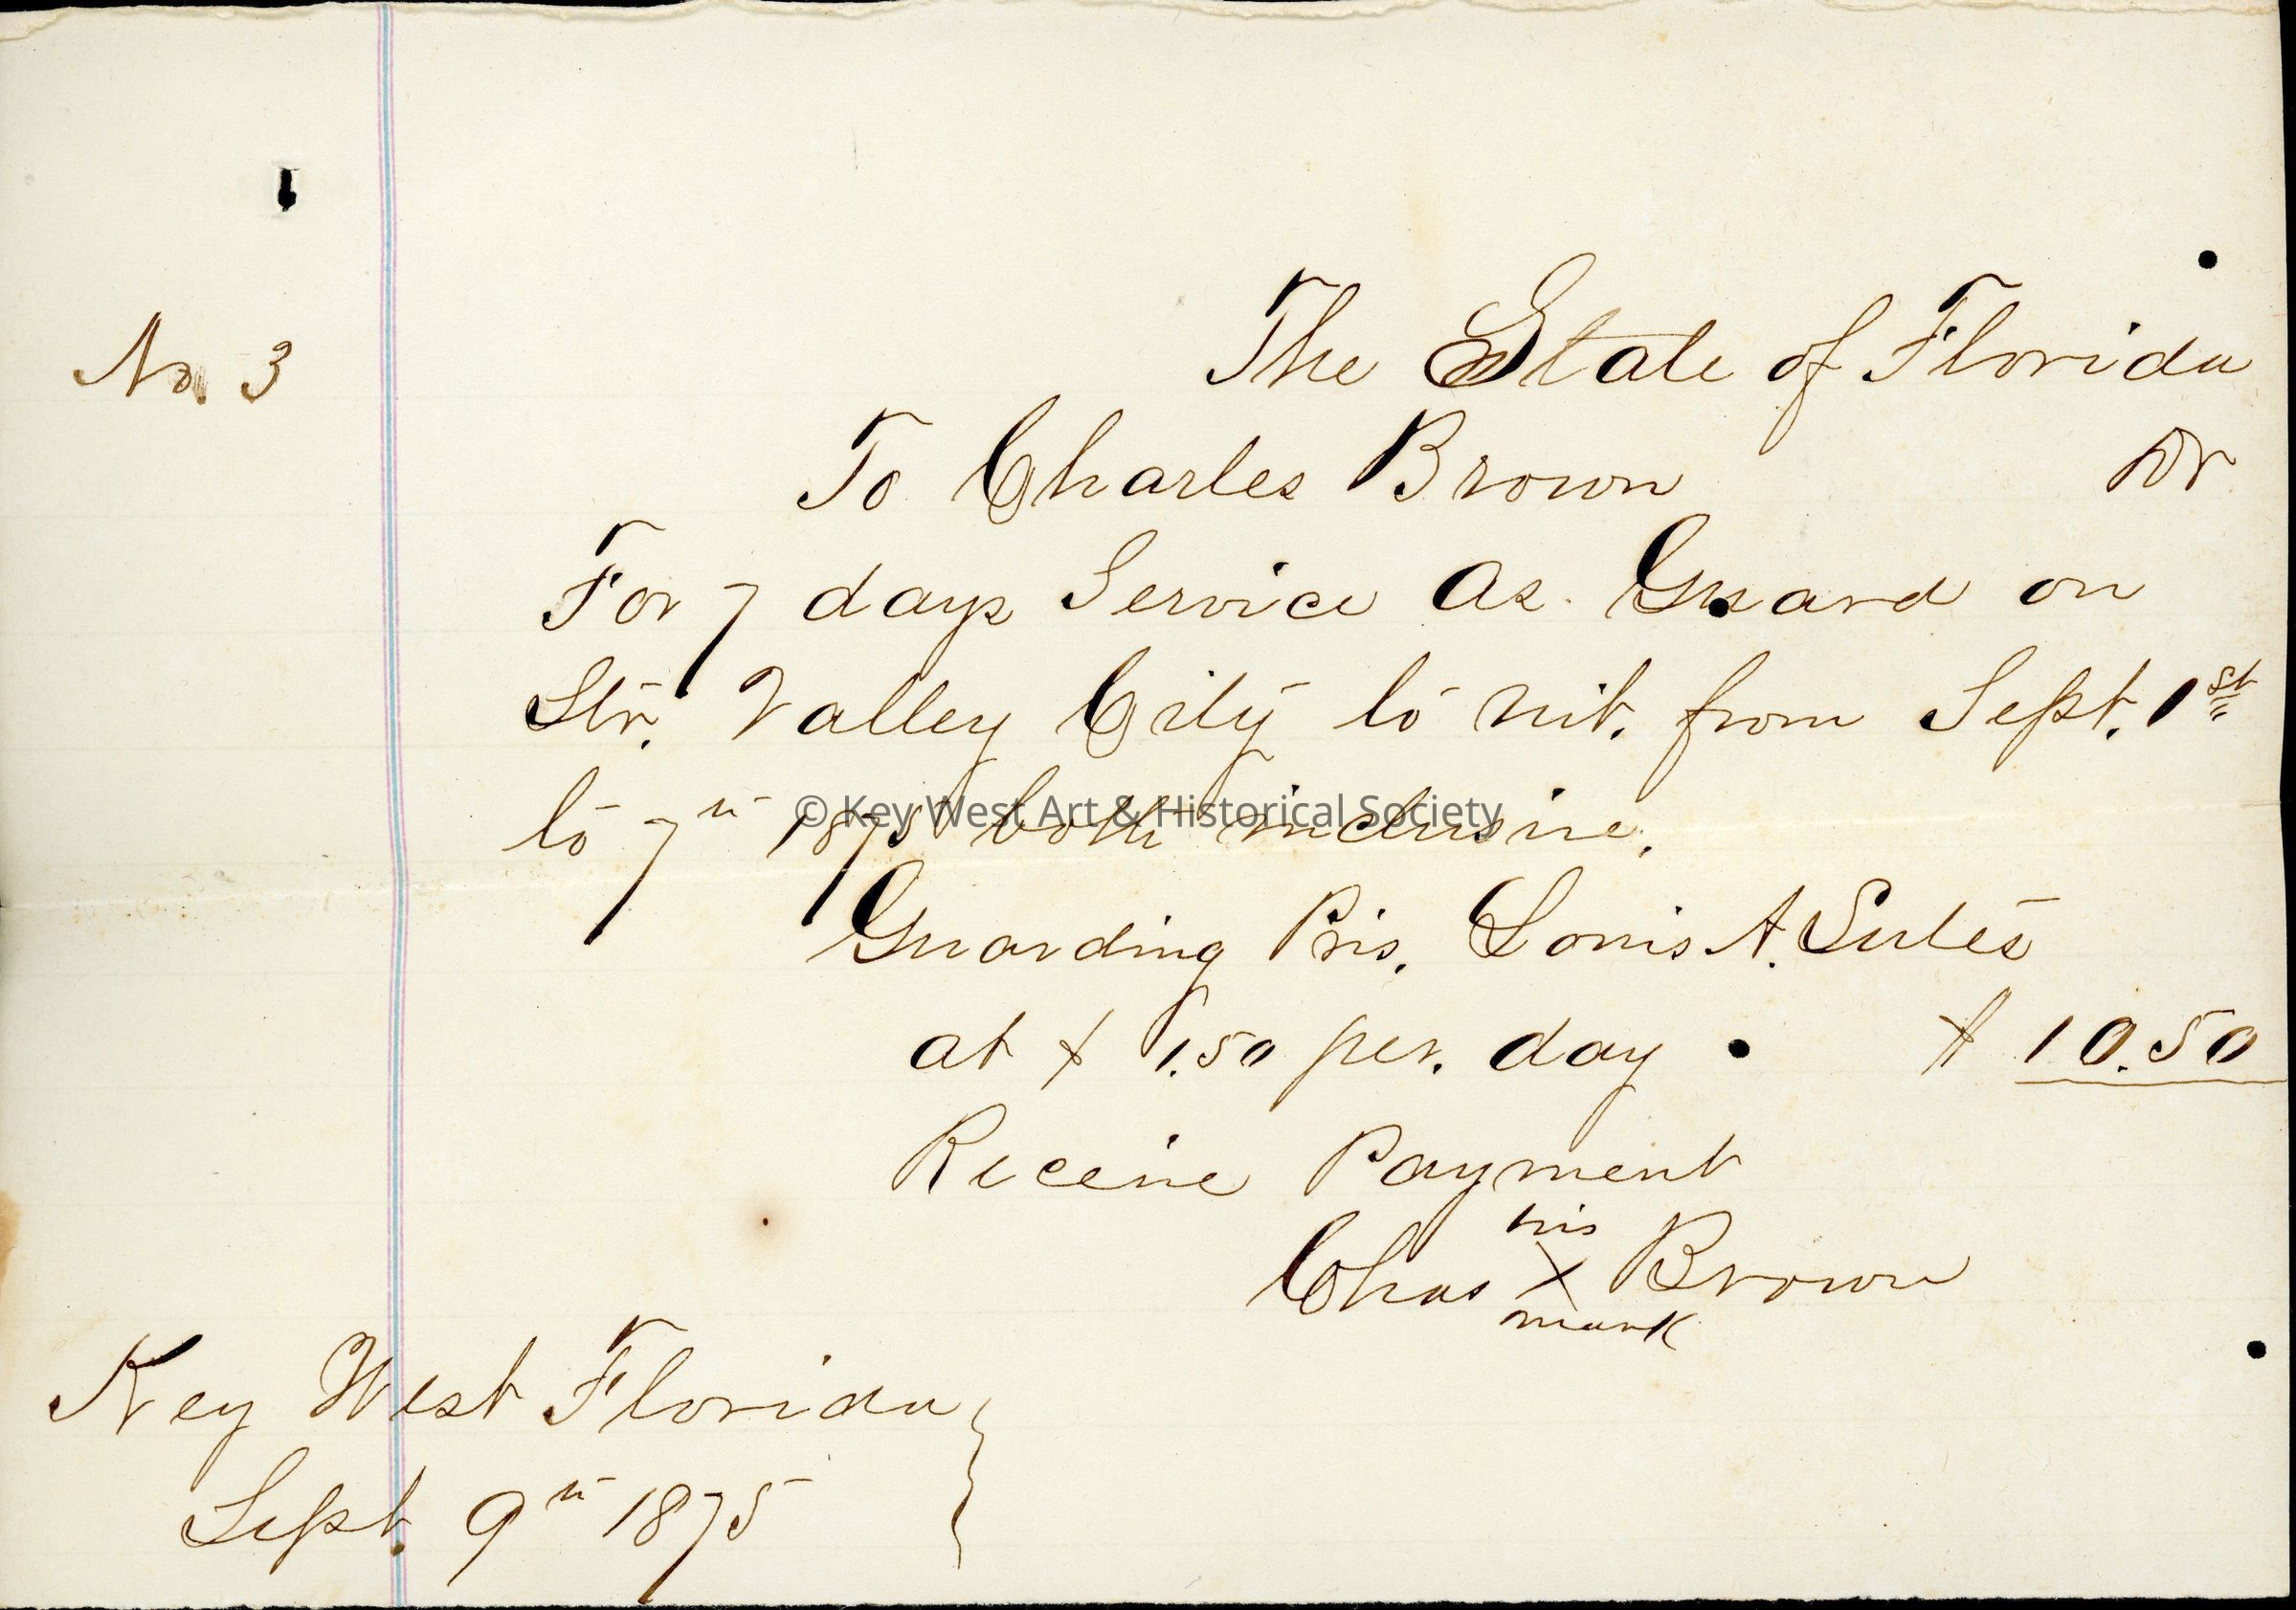 No. 3
The State of Florida
To Charles Brown Dr
For 7 days Service As Guard on
Str. Valley City to wit. from Sept. 1st
to 7th 1875 both inclusive.
© Key West Art & Historical Society
Guarding Pris. Louis A.
at $ 1.50 per. day . $ 10.50
Receive Payment
his
Chas X Brown
mark
Key West Florida
Sept. 9th 1875